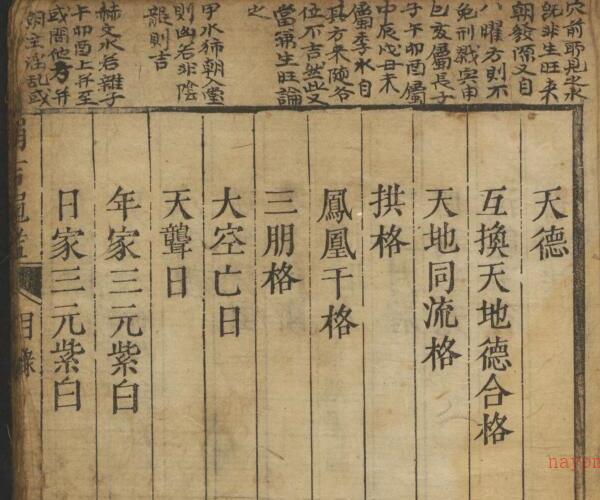 穴前所見之水
既非生旺來
朝發源又自
八曜方則不
免刑戮寅申
巳亥屬長子
子午卯酉屬
中辰戌丑未
屬季水自
其方來隨各
位不吉然此又
當第生旺論
之
甲水獅朝入堂
則凶若非陰
龍則吉
赫文水若雜子
午卯酉上并至
或間他方并
朝主淫亂或
天德
互換天地德合格
天地同流格
拱格
鳳凰干格
三朋格
大空亡日
天聾日
年家三元紫白
日家三元紫白
目錄